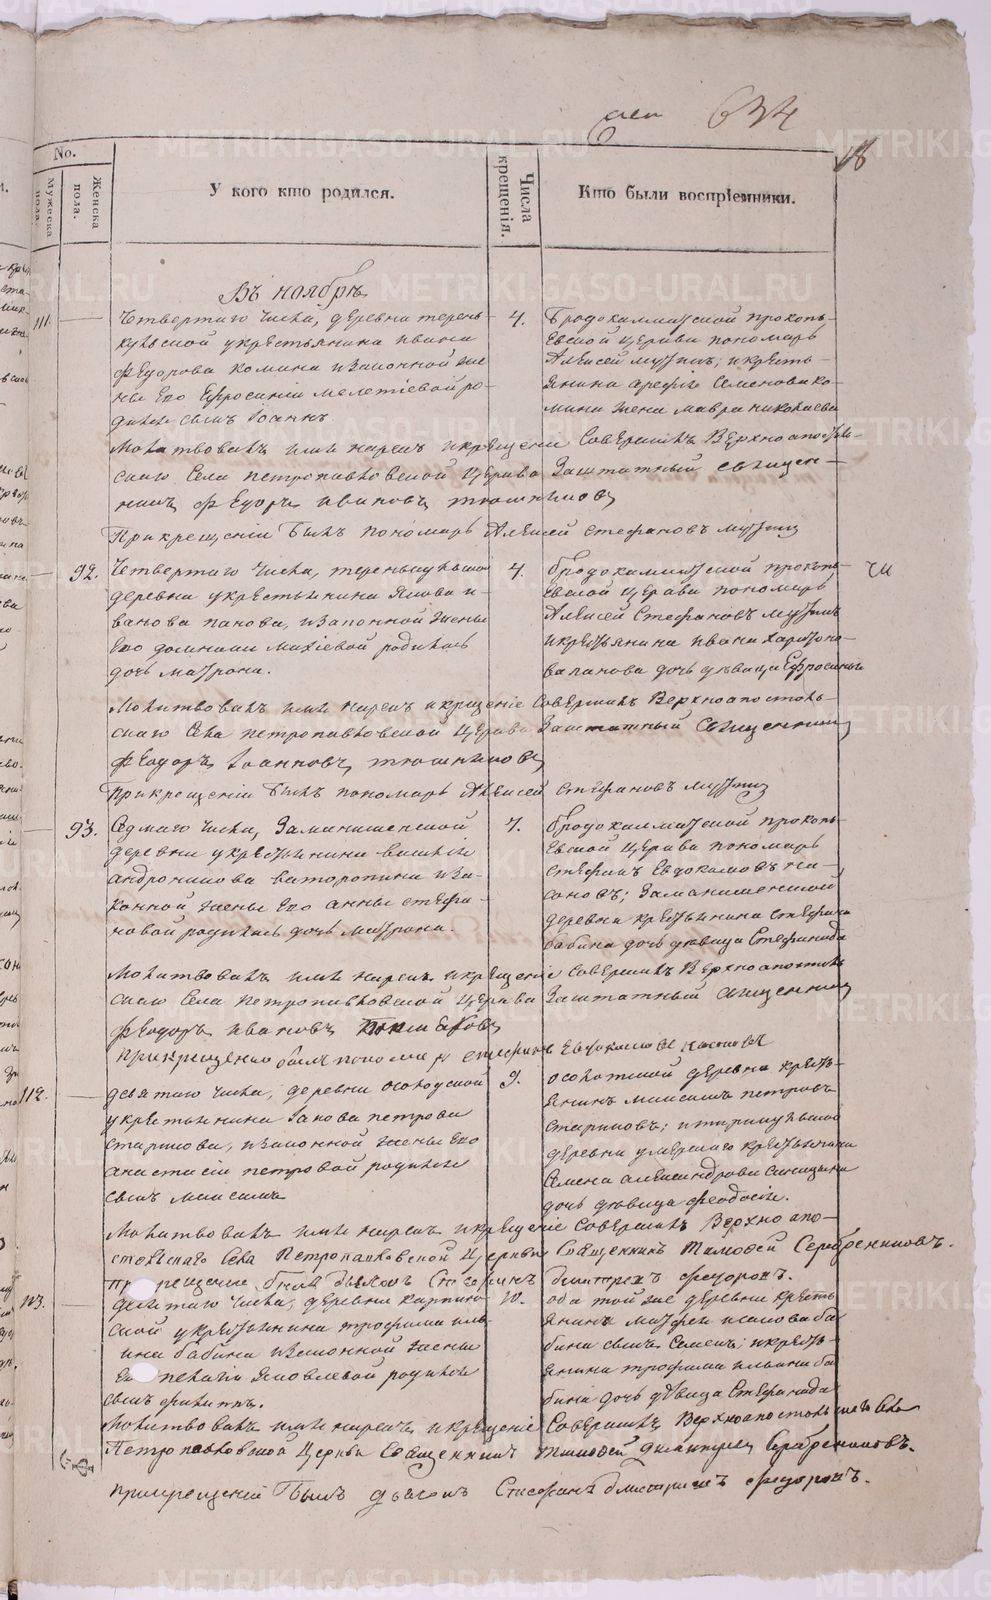 634
18
No.
Мужеска пола.
Женска пола.
У кого кто родился.
Числа крещенія.
Кто были воспріемники.
Въ ноябрѣ
111.
Четвертаго числа, деревни терень-
кульской укрестьянина ивана
Федорова комина изаконной же
ны его Ефросиніи мелетіевой ро-
дился сынъ Іоаннъ.
4.
Бродокалматской прокопь-
Евской церкви пономарь
Алексей; икресть-
янина арефія Семенова ко-
мина жена мавра николаева
Молитвовалъ имя нарекъ икрещеніе Совершилъ Верхноапостоль-
скаго Села петропавловской церкви Заштатный священ-
никъ Федоръ ивановъ
Прикрещеніи былъ пономарь Алексей стефановъ
92.
Четвертаго числа, теренькульской
деревни укрестьянина Якова и-
ванова панова, изаконной жены
Его домники михіевой родилась
дочь матрона.
4.
бродокалматской прокопь-
евской церкви пономарь
Алексей Стефановъ
икрестьянина ивана харитоно-
ва панова дочь дѣвица Ефросинья
Молитвовалъ имя нарекъ икрещеніе Совершилъ Верхноапостоль-
скаго Села петропавловской церкви Заштатный Священникъ
Феодоръ Іоанновъ
Прикрещеніи былъ пономарь Алексей Стефановъ
93.
Седмаго числа,
деревни укрестьянина василія
андроникова ваторопина иза-
конной жены Его анны стефа-
новой родилась дочь матрона.
7.
бродокалматской прокопь-
Евской церкви пономарь
стефанъ Евдокимовъ
деревни крестьянина стефана
бабина дочь дѣвица Стефанида
Молитвовалъ имя нарекъ икрещеніе совершилъ Верхноапостоль
скаго Села петропавловской церкви Заштатный священникъ
Феодоръ ивановъ
прикрещеніи былъ пономарь стефанъ Евдокимовъ
112.
девятаго числа, деревни осолодской
укрестьянина Іакова петрова
старикова, изаконной жены его
анастасіи петровой родился
сынъ максимъ
9.
осолотской деревни кресть-
янинъ максимъ петровъ
Стариковъ;
деревни умершаго крестьянина
Семена александрова синицына
дочь дѣвица феодосія.
Молитвовалъ имя нарекъ икрещеніе совершилъ Верхноапо-
стольскаго Села Петропавловской Церкви Священникъ Тимофей Серебренниковъ.
при крещеніи былъ дьяконъ Стефанъ Димитріевъ Федоровъ.
113.
десятаго числа, деревни карпин-
ской укрестьянина трофима иль-
ина бабина изаконной жены
Его пелагіи Яковлевой родился
сынъ филиппъ.
10.
оба той же деревни кресть
янинъ матфея исакова ба
бина сынъ Семенъ; икресть-
янина трофима ильина ба
бина дочь дѣвица Стефанида
Молитвовалъ имя нарекъ икрещеніе Совершилъ Верхноапостольскаго Села
Петропавловской Церкви Священникъ Тимофей Димитріевъ Серебренниковъ.
прикрещеніи былъ дьяконъ Стефанъ Димитріевъ Федоровъ.
METRIKI.GASO-URAL.RU